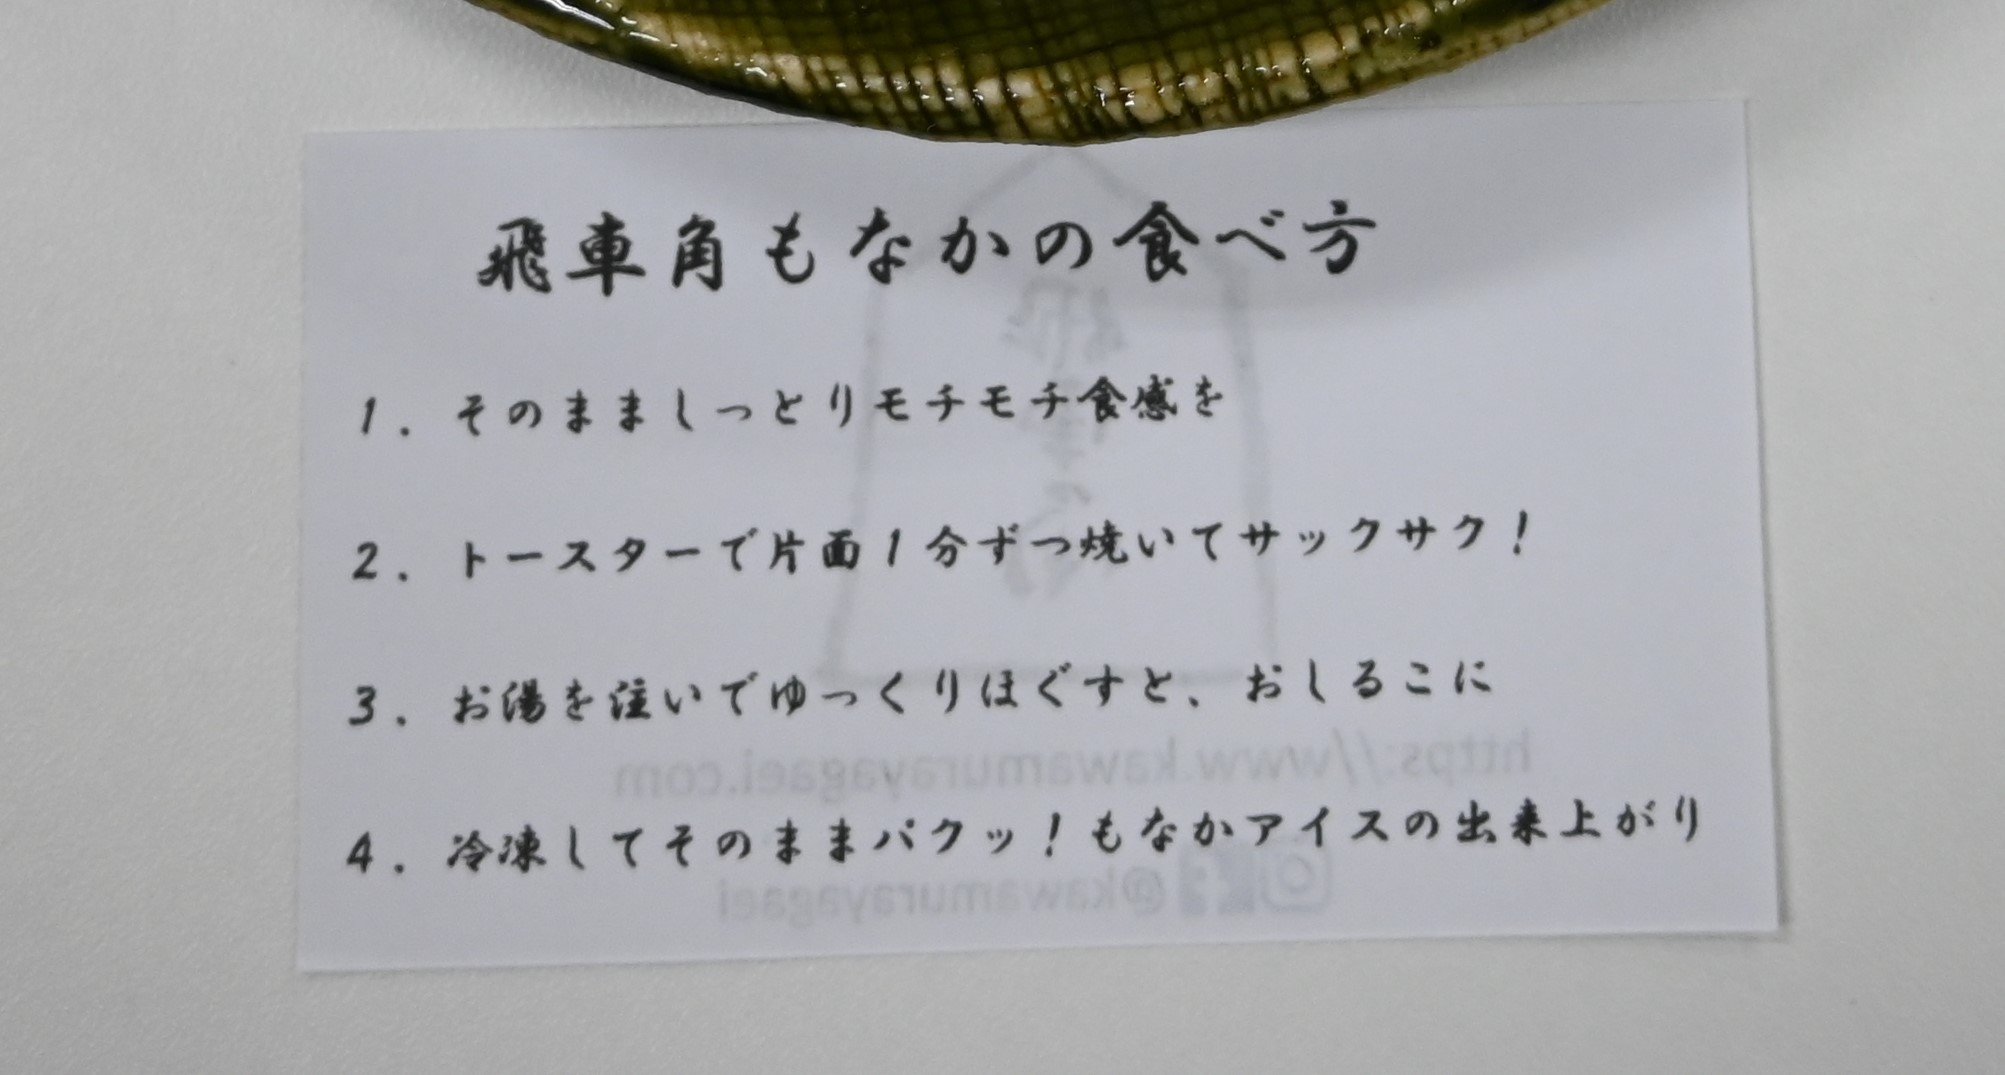 飛車角もなかの食べ方
1. そのまましっとりモチモチ食感を
2. トースターで片面1分ずつ焼いてサックサク!
3. お湯を注いでゆっくりほぐすと、おしるこに
https://www.kawamurayagaei.com
4. 冷凍してそのままパクッ!もなかアイスの出来上がり
@kawamurayagaei